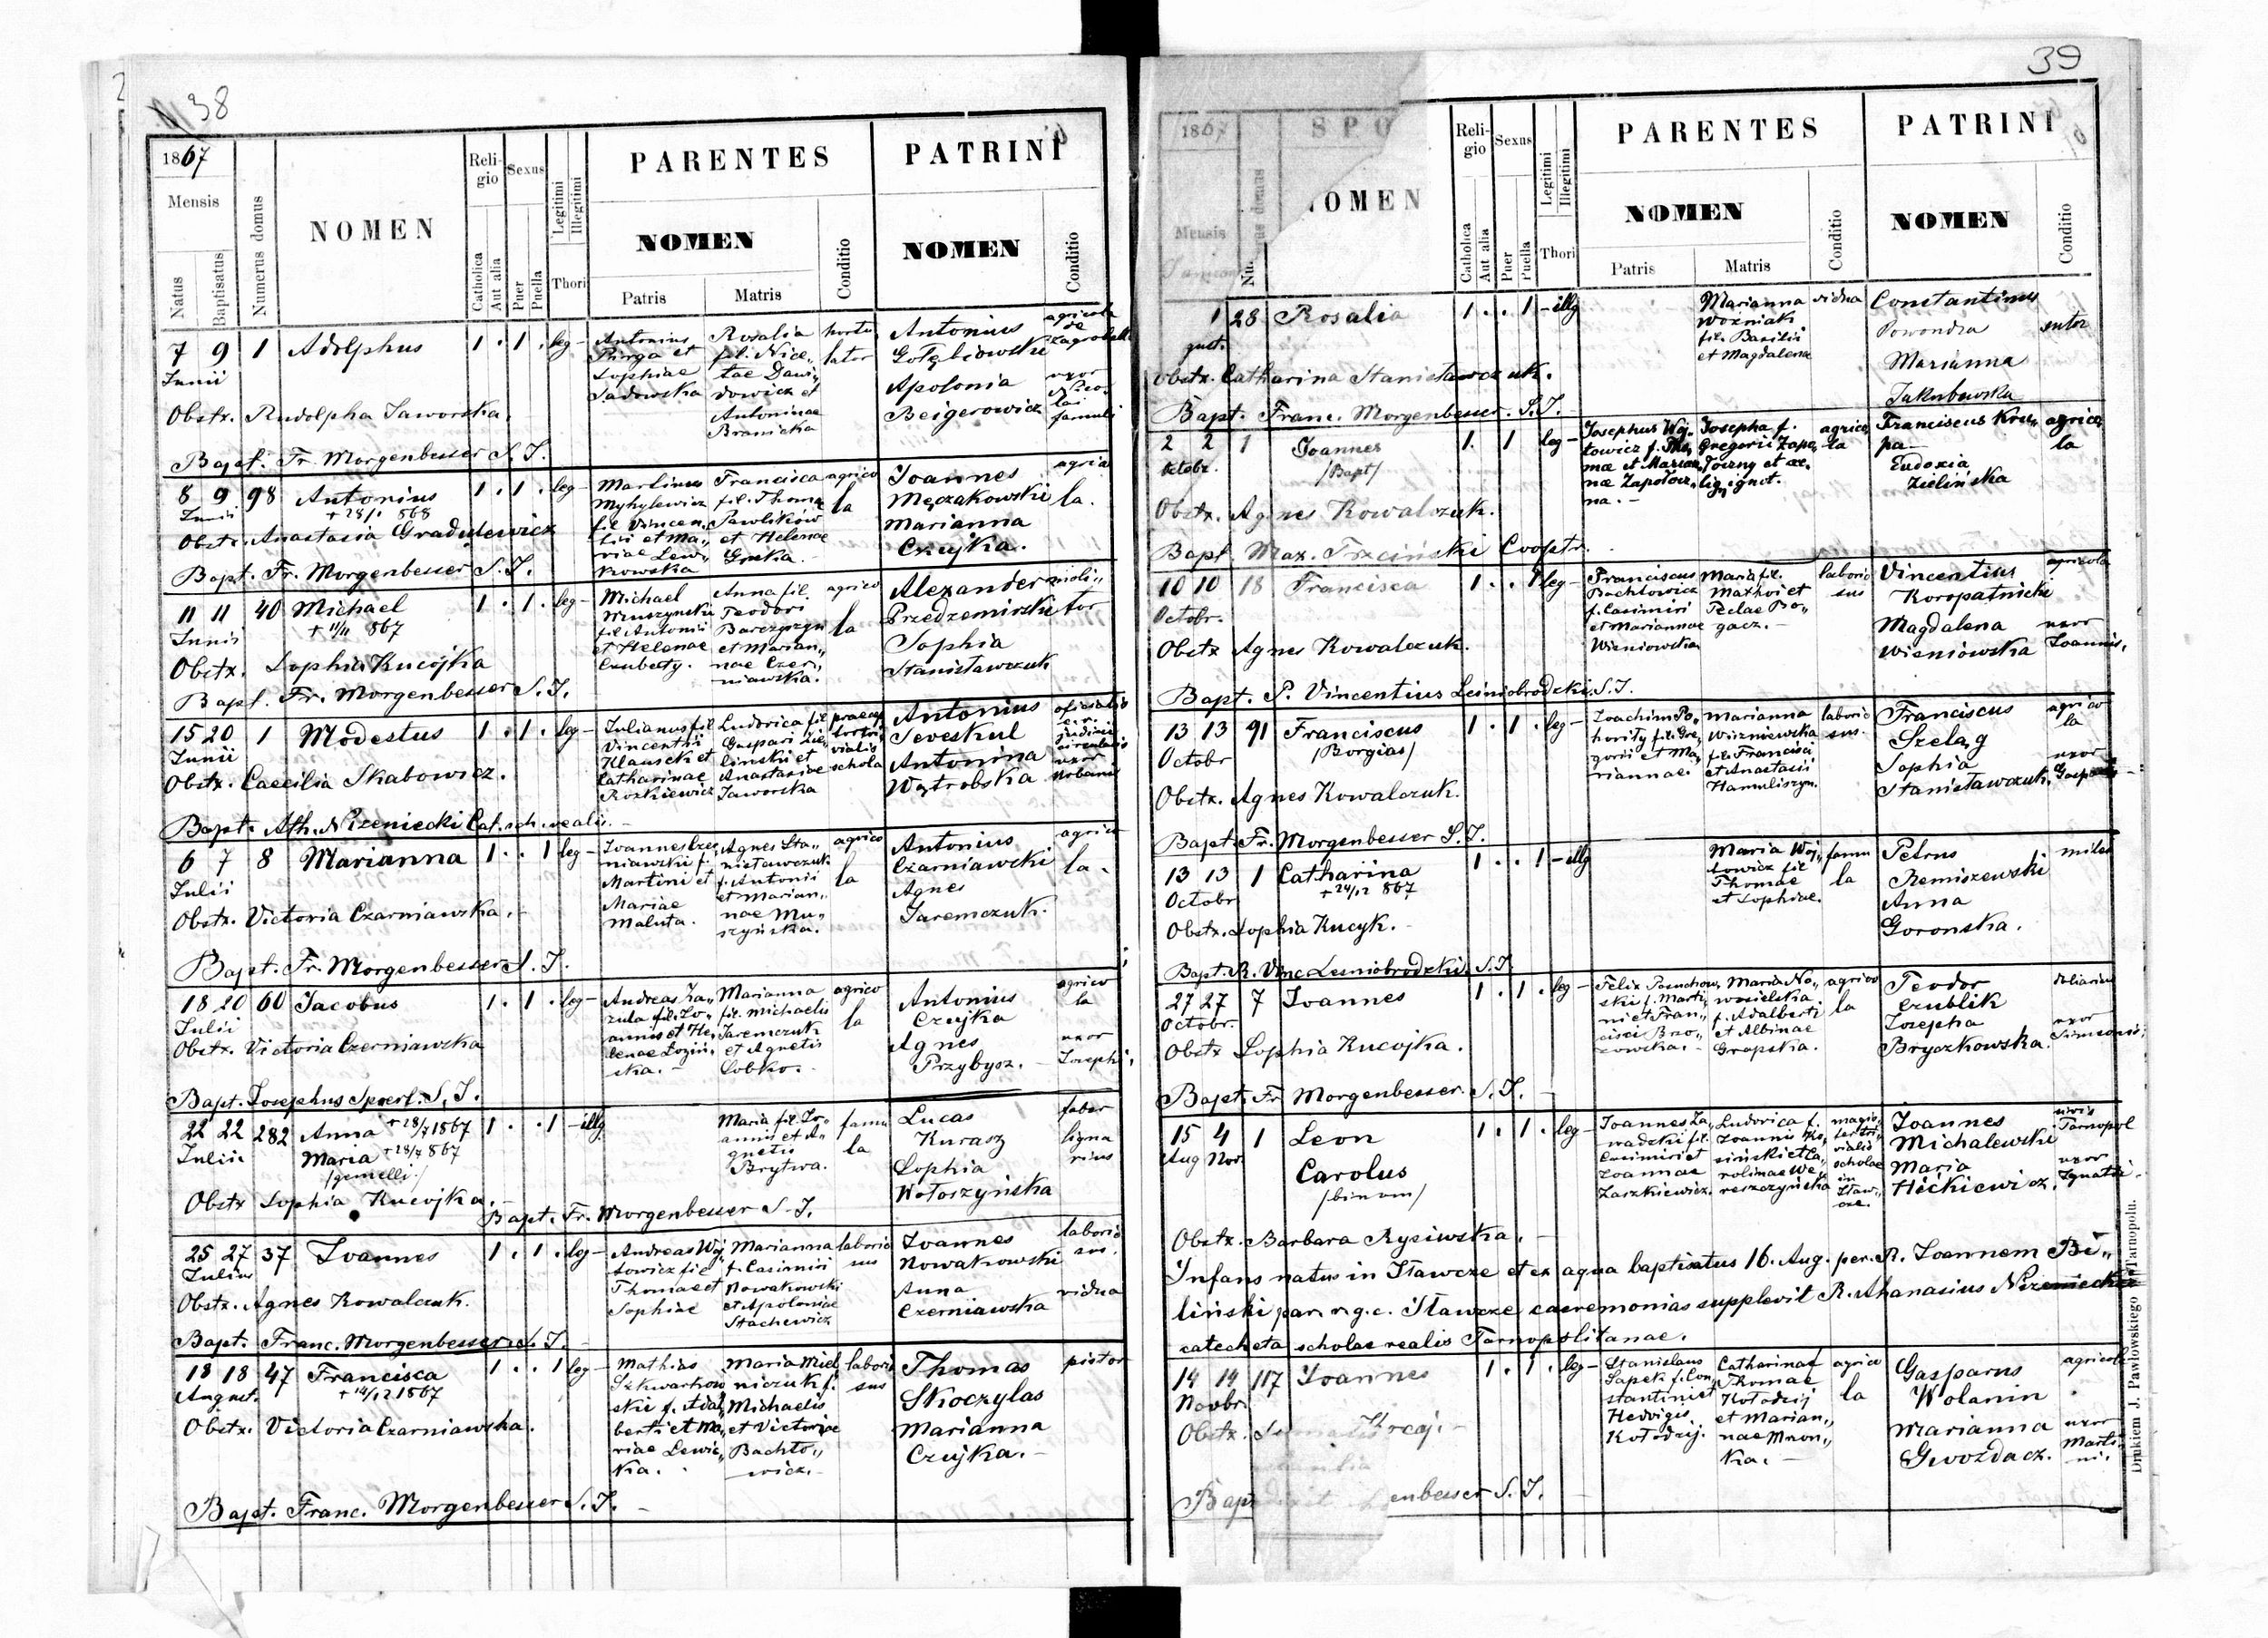 38
1867
Mensis
Natus
Baptisatus
Numerus domus
NOMEN
Religio
Catholica
Aut alia
Sexus
Puer
Puella
Legitimi
Illegitimi
Thori
PARENTES
NOMEN
Patris
Matris
Conditio
PATRINI
NOMEN
Conditio
7 9 1 Adolphus 1 . 1 . leg-
Junii
Antonius
Purga et
Sophiae
Sadowska
Rosalia
fil. Nice„
tae Dawi„
dowicz et
Antoninae
Branicka
hortu
lator
Antonius
Gołębiowski
Apolonia
Beigerowicz
agricola
de
Zagrobela
uxor
Nico
lai
famuli
Obstx. Rudolpha Jaworska.
Bapt. Fr. Morgenbesser S. J.
8 9 98 Antonius 1 . 1 . leg-
Junii + 28/1 868
Martinus
Myhylewicz
fil. Vincen„
tii et Ma„
riae Lew„
kowska
Francisca
fil. Thoma
Pawlików
et Helenae
Greka.
agrico
la
Joannes
Męczakowski
Marianna
Czujka.
agrico
la.
Obstx. Anastasia Gradulewicz
Bapt. Fr. Morgenbesser S. J.
11 11 40 Michael 1 . 1 . leg-
Junii + 11/11 867
Michael
Muszynski
fil. Antonii
et Helenae
Czuberty.
Anna fil.
Teodori
Barczyszyn
et Marian„
nae Czer„
niawska.
agrico
la
Alexander
Przedzemirski
Sophia
Stanisławczuk
moli„
tor
Obstx. Sophia Kucojka
Bapt. Fr. Morgenbesser S. J.
15 20 1 Modestus 1 . 1 . leg-
Junii
Julianus fil
Vincentii
Klauseket
Catharinae
Rozkiewicz
Ludovica fil
Gaspari Zie„
linski et
Anastasiae
Jaworska
praecep
tor tri
vialis
schola
Antonius
Seveskul
Antonina
Wątrobska
oficialis
c. r.
judicii
circularis
uxor
Urbani
Obstx. Caecilia Skabowicz.
Bapt. Ath. Nizeniecki Cat. sch. realis.
6 7 8 Marianna 1 . . 1 leg-
Julii
Joannes Czer
niawski f.
Martini et
Mariae
Maluta.
Agnes Sta„
nisławczuk
f. Antonii
et Marian„
nae Mu„
szyńska.
agrico
la
Antonius
Czarniawski
Agnes
Jaremczuk.
agrico
la.
Obstx. Victoria Czarniawska.
Bapt. Fr. Morgenbesser S. J.
18 20 60 Jacobus 1 . 1 . leg-
Julii
Andreas Za„
zula fil. Jo„
annis et He„
lenae Łozin„
ska.
Marianna
fil. Michaelis
Jaremczuk
et Agnetis
Łobko.
agrico
la
Antonius
Czujka
Agnes
Przybysz.
agrico
la
uxor
Josephi.
Obstx. Victoria Czerniawska
Bapt. Josephus Sperl. S. J.
22 22 282 Anna + 28/7 1867 1 . . 1 - illg
Julii Maria + 28/7 867
/gemelli/
Maria fil. Jo„
annis et A„
gnetis
Brytwa.
famu
la
Lucas
Kurasz
Sophia
Wołoszyńska
faber
ligna
rius
Obstx Sophia Kucojka.
Bapt. Fr. Morgenbesser S. J.
25 27 37 Joannes 1 . 1 . leg-
Julius
Andreas Woj
towicz fil
Thomae et
Sophiae
Marianna
f. Casimiri
Nowakowski
et Apoloniae
Stachewicz
laborio
sus
Joannes
Nowakowski
Anna
Czerniawska
laborio
sus.
vidua
Obstx. Agnes Kowalczuk.
Bapt. Franc. Morgenbesser S. J.
18 18 47 Francisca 1 . . 1 leg-
August. + 14/12 1867
Mathias
Szkwarkow
ski f. Adal
berti et Ma„
riae Lewic„
ka.
Maria Miel
niczuk f.
Michaelis
et Victoriae
Bachto„
wicz.
labori
sus
Thomas
Skoczylas
Marianna
Czujka.
pistor
Obstx. Victoria Czarniawska.
Bapt. Franc. Morgenbesser S. J.
39
1867
SPO
Mensis
NOMEN
Religio
Catholica
Aut alia
Sexus
Puer
Puella
Legitimi
Illegitimi
Thori
PARENTES
NOMEN
Patris
Matris
Conditio
PATRINI
NOMEN
Conditio
1 28 Rosalia 1 . . 1 - illg
gust.
Marianna
Woźniak
fil. Basilii
et Magdalena
vidua
Constantinus
Powondra
Marianna
Jakubowska
sutor
Obstx. Catharina Stanisławczuk.
Bapt. Franc. Morgenbesser. S. J.
2 2 1 Joannes 1. 1 leg-
Octobr. /Bapt/
Josephus Woj„
towicz f. Tho„
mae et Marian„
nae Zapotocz„
na.
Josepha f.
Gregorii Zapo„
toczny et ae.
lig ignot.
agrico
la
Franciscus Kru„
pa
Eudoxia
Zielińska
agrico
la
Obstx. Agnes Kowalczuk.
Bapt Max. Trzciński Cooptr.
10 10 18 Francisca 1 . . 1 leg-
Octobr.
Franciscus
Bachtowicz
f. Casimiri
et Mariannae
Wisniowska
Maria fil.
Mathei et
Teclae Bo„
gacz.
laborio
sus
Vincentius
Koropatnicki
Magdalena
Wisniówska
agricola
uxor
Joannis.
Obstx Agnes Kowalczuk.
Bapt. P. Vincentius Leśniobrodzki. S. J.
13 13 91 Franciscus 1 . 1 . leg-
Octobr /Borgias/
Joachim Po„
hority fil. Gre„
gorii et Ma„
riannae.
Marianna
Wiszniewska
fil. Francisci
et Anastasii
Hamuliszyn.
laborio
sus.
Franciscus
Szeląg
Sophia
Stanisławczuk.
agrico
la
uxor
Obstx. Agnes Kowalczuk.
Bapt. Fr. Morgenbesser S. J.
13 13 1 Catharina 1 . . 1 - illg
Octobr + 24/12 867
Maria Woj„
towicz fil
Thomae
et Sophiae.
famu
la
Petrus
Remiszewski
Anna
Goronska.
miles
Obstx. Sophia Kucyk.
Bapt. R. Vinc Lesniobrodzki. S. J
27 27 7 Joannes 1 . 1 . leg-
Octobr.
Felix Paruchow„
ski f. Marti„
ni et Fran„
cisci Bzo„
zowska.
Maria No„
wosielska
f. Adalberti
et Albinae
Gropska.
agrico
la
Teodor
Czublik
Josepha
Bryczkowska.
doliarius
uxor
Simeonis.
Obstx Sophia Kucojka.
Bapt. Fr Morgenbesser. S. J.
15 4 1 Leon 1 . 1 . leg-
Aug Nov. Carolus
/binom/
Joannes Za„
wadzki fil.
Casimiri et
Joannae
Zaszkiewicz.
Ludovica f.
Joannis Ko„
sińskiet Ca„
rolinae We„
reszczyńska
magis„
ter tri„
vialis
scholae
in
Iław„
cze.
Joannes
Michalewski
Maria
Hićkiewicz.
civis
Tarnopol
uxor
Ignatii.
Obstx. Barbara Rysiwska.
Infans natus in Iławcze et ex aqua baptisatus 16. Aug. per. R. Joannem Bi„
liński par. r. g. c. Iławcze caeremonias supplevit R. Athanasius Nizeniecki
catecheta scholae realis Tarnopolitanae.
14 14 117 Joannes 1 . 1 . leg-
Novbr.
Stanislaus
Sapek f. Con„
stantini et
Hedvigis
Kołodzij.
Catharina f
Thomae
Kołodzij
et Marian„
nae Mron„
ka.
agrico
la
Gasparus
Wolanin
Marianna
Gwozdacz.
agricola
uxor
Marti„
ni.
Obstx.
Bapt enbesser S. J.
Drukiem J. Pawłowskiego w Tarnopolu.